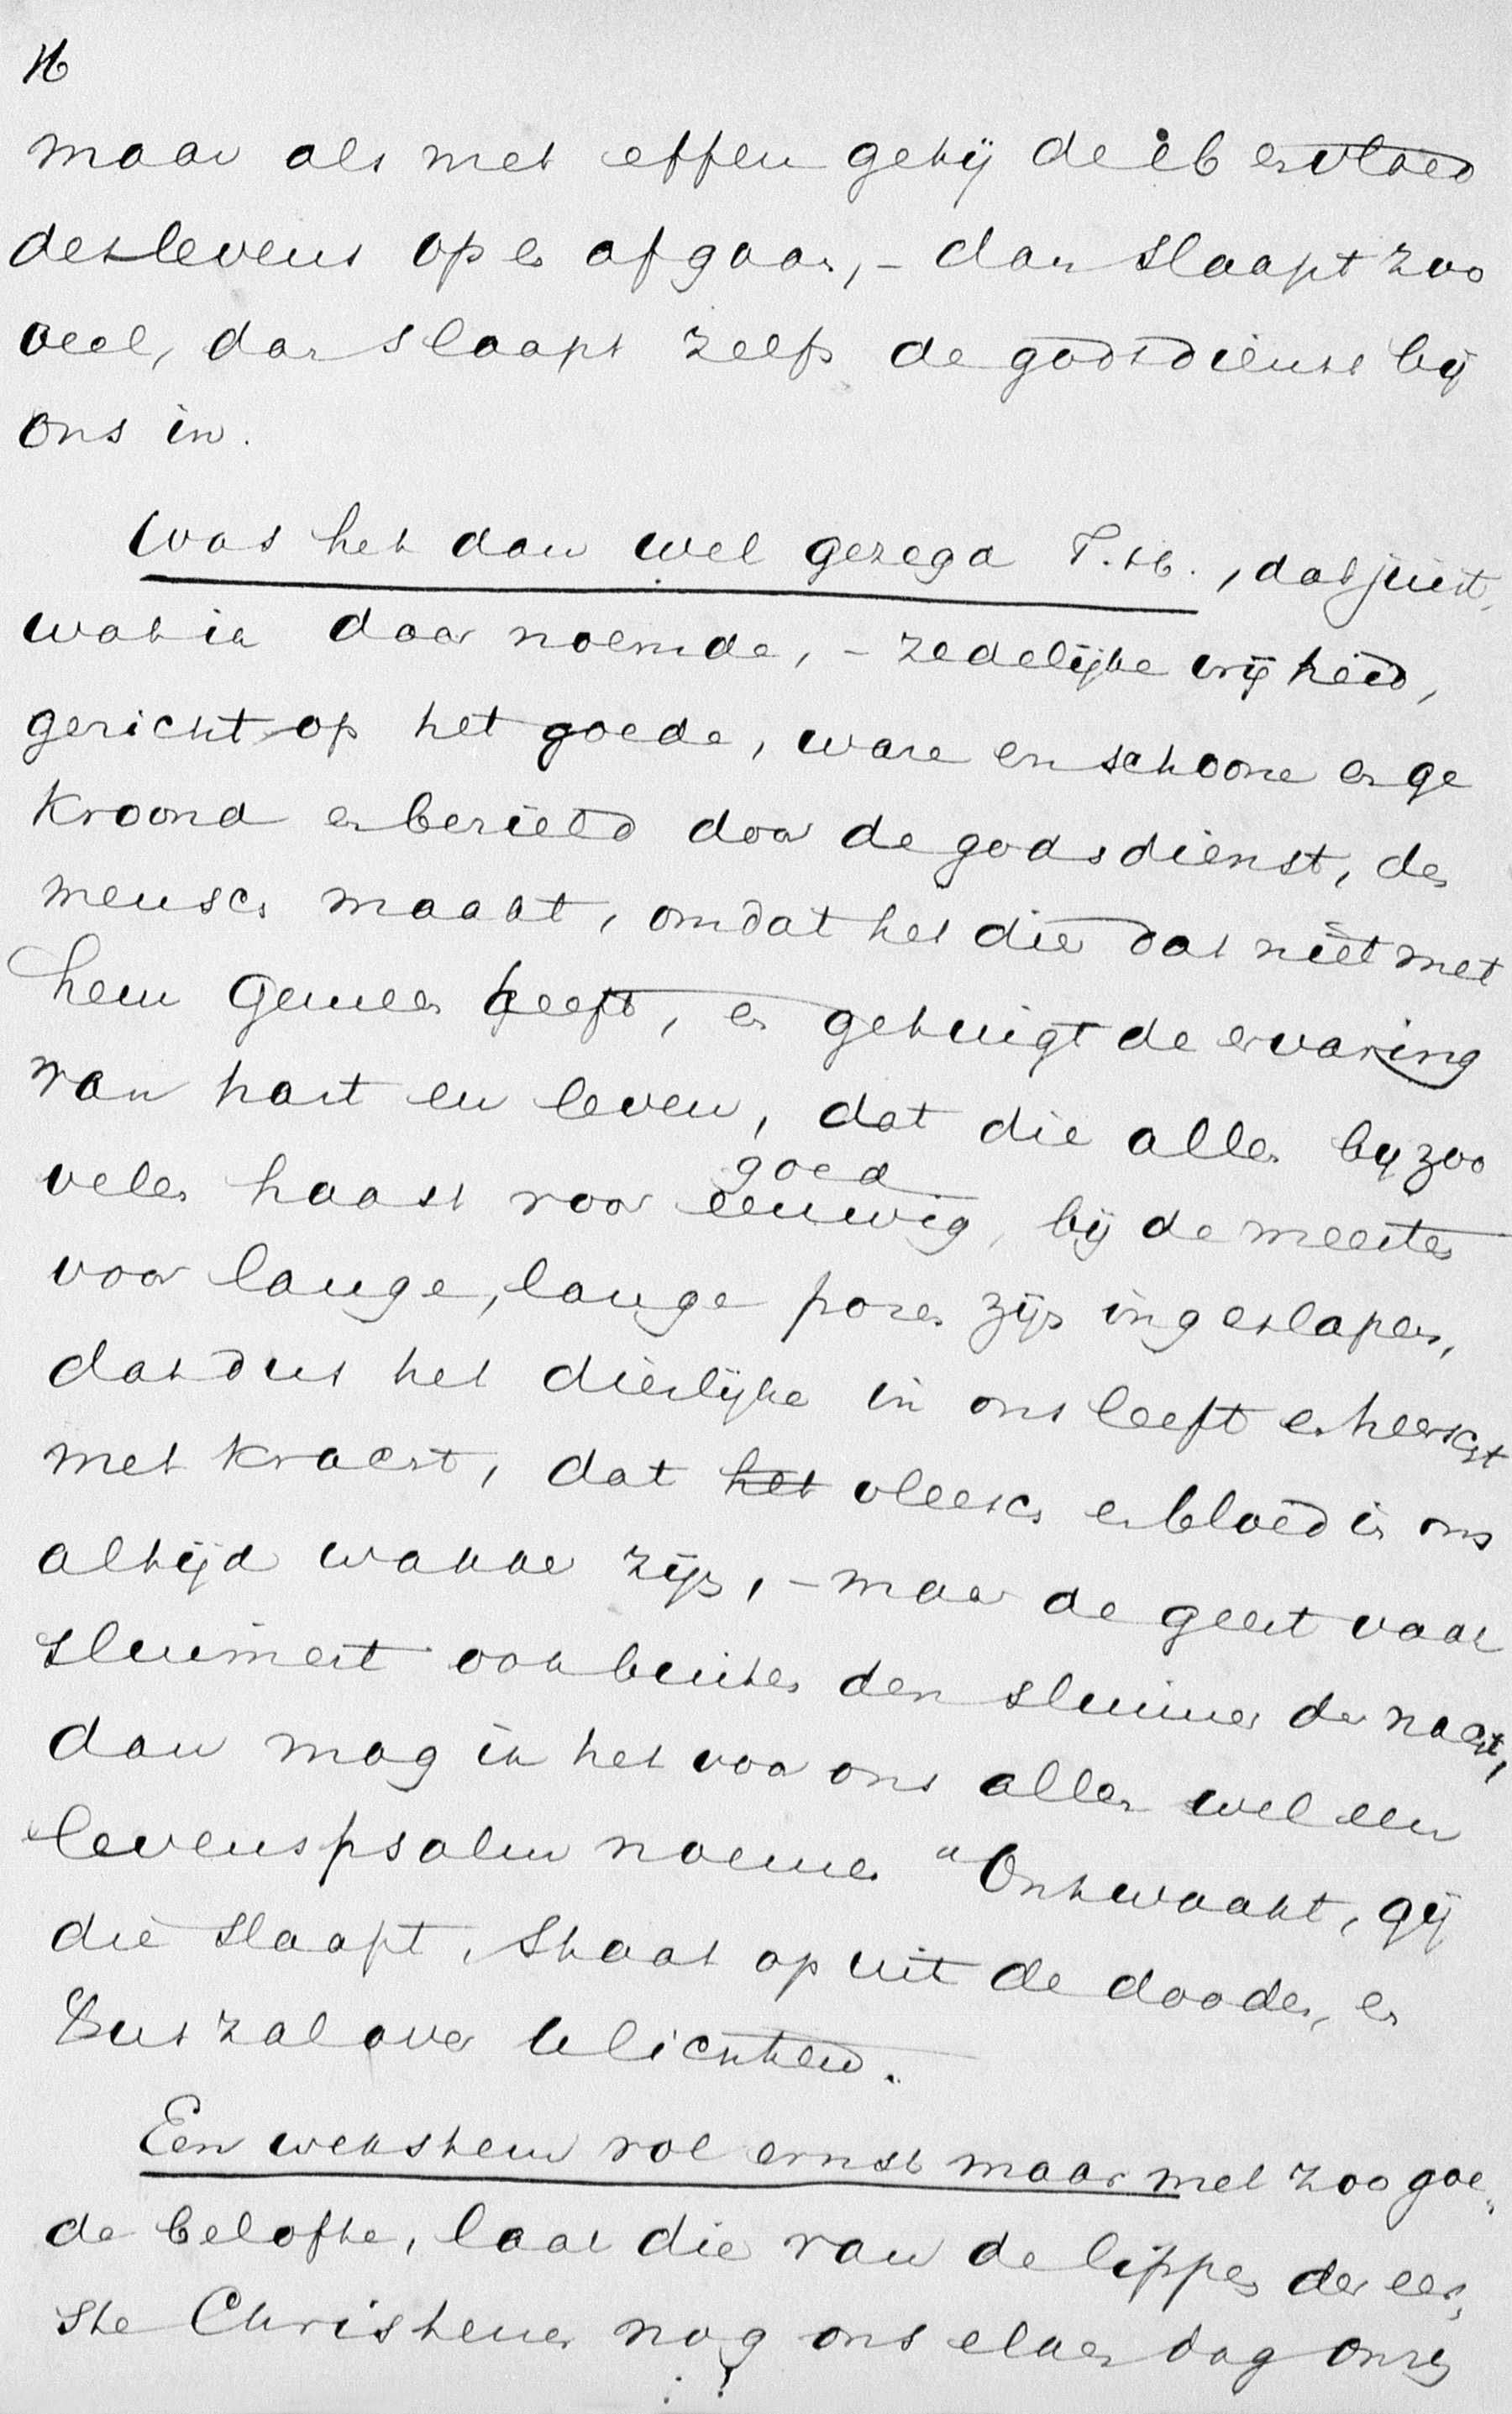 16
maar als met effen getij de eb en vloed
des levens op en af gaan, – dan slaapt zoo
veel, dan slaapt zelfs de godsdienst bij
ons in.
Was het dan wel gezegd T. H., dat juist,
wat ik daar noemde, – zedelijke vrijheid,
gericht op het goede, ware en schoone en ge
kroond en bezield door de godsdienst, den
mensch maakt, omdat het dier dat niet met
hem gemeen heeft, en getuigt de ervaring
van hart en leven, dat die allen bij zoo
velen haast voor goed
eeuwig, bij de meesten
voor lange, lange pozen zijn ingeslapen,
dat dus het dierlijke in ons leeft en heerscht
met kracht, dat het vleesch en bloed in ons
altijd wakker zijn, – maar de geest vaak
sluimert ook buiten den sluimer der nacht,
dan mag ik het voor ons allen wel een
levenspsalm noemen "Ontwaakt, gij
die slaapt, staat op uit de dooden, en
Christus zal over u lichten".
Een wekstem vol ernst maar met zoo goe„
de belofte, laat die van de lippen der eer„
ste Christenen nog ons elken dag onzes